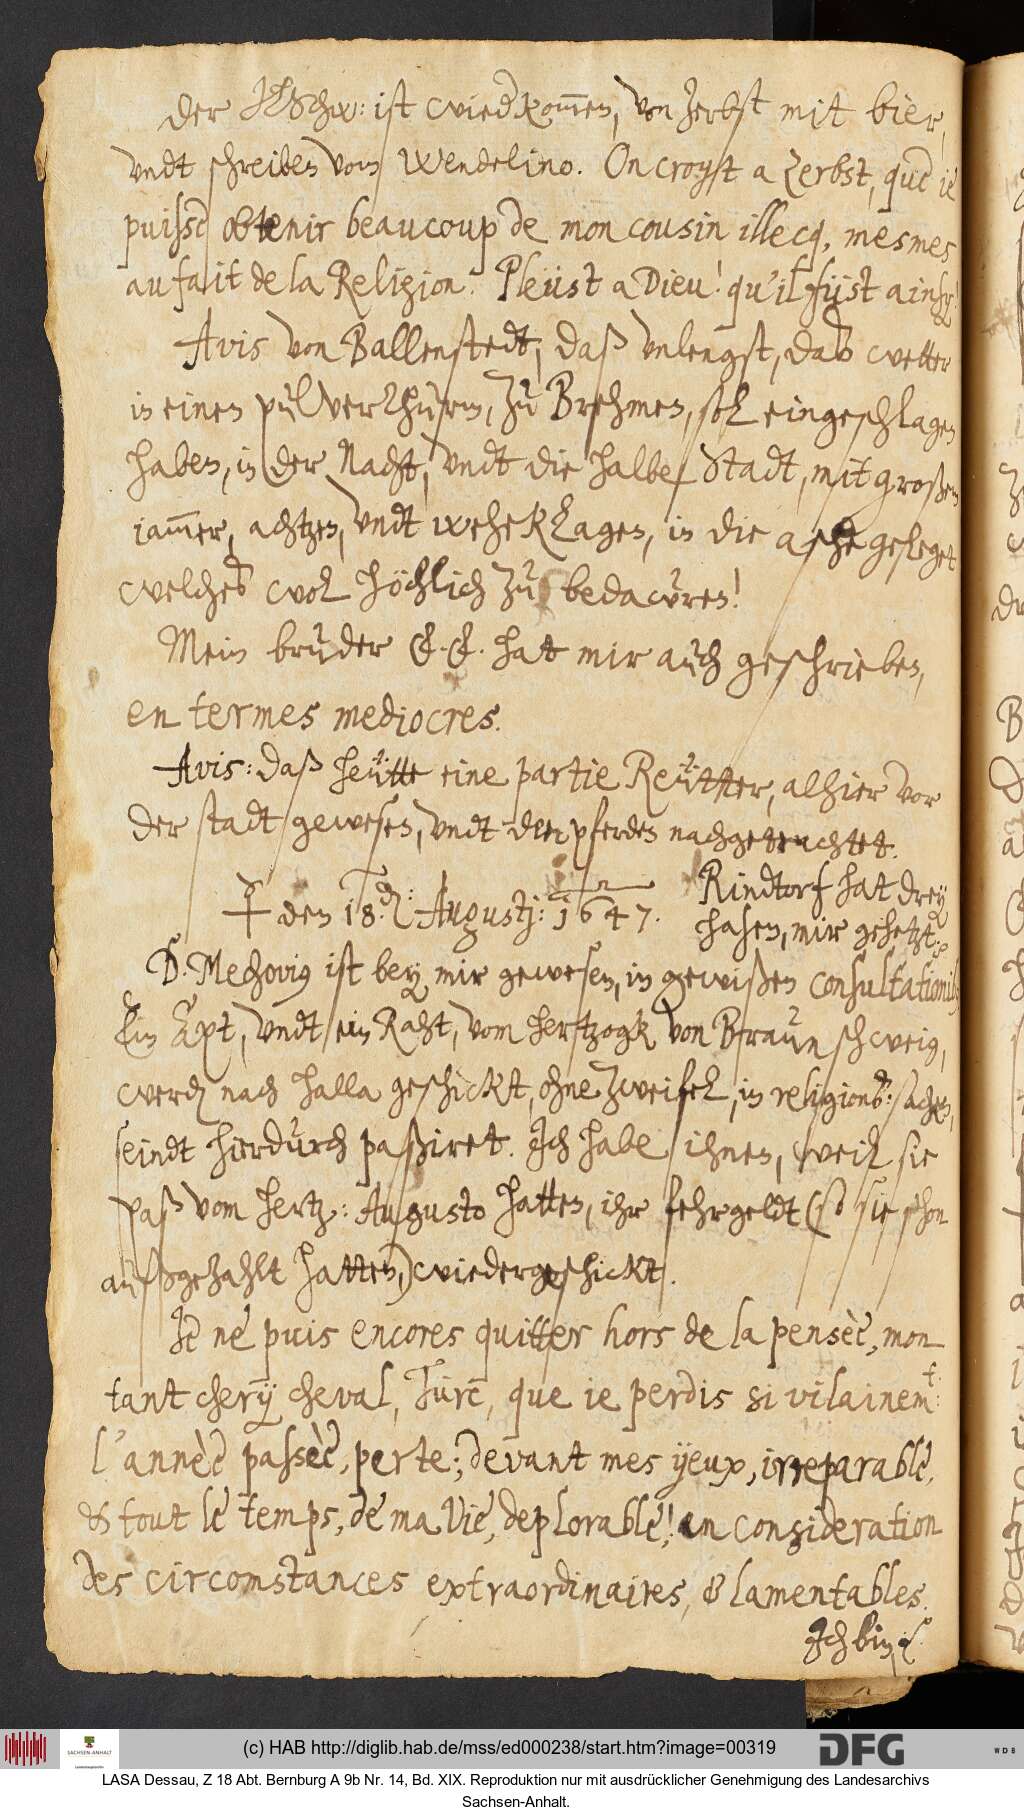 Der HSchw: ist wiedkom̅en, von Zerbst mit bier,
vndt schreiben vom Wendelino. On croyst a Zerbst, que ie
puisse obtenir beaucoup de mon cousin illecq, mesmes
au fait de la Religion. Pleüst a Dieu! qu'il füst ainsy!
Avis von Ballenstedt, daß vnlengst, das wetter
in einen pulverthurm, zu Brehmen, sol eingeschlagen
haben, in der Nacht, vndt die halbe Stadt, mit großem
iam̅er, achtzen, vndt weheklagen, in die asche geleget
welches wol höchlich zu bedawren!
Mein bruder hat mir auch geschrieben,
en termes mediocres.
Avis: daß heütte eine partie Reütter, alhier vor
der stadt gewesen, vndt den pferden nachgetrachtet.
den 18. Augustj: 1647.
Rindtorf hat drey
hasen, mir gehetzt.
D. Mechovius ist bey mir gewesen, in gewißen consultationibus
Ein Apt, vndt ein Raht, vom hertzogk von Braunschweig,
werden nach Halla geschickt, ohne Zweifel, in religions: sachen,
seindt hierdurch paßiret. Ich habe ihnen, weil sie
paß vom hertz: Augusto hatten, ihr fehrgeldt (so sie schon
außgezahlt hatten,) wiedergeschickt.
Je ne puis encores quitter hors de la pensèe, mon
tant chery cheval, Türc, que ie perdis si vilainemt:
l'annèe passèe, perte; devant mes yeux, irreparable,
& tout le temps, de ma Vie, deplorable! en consideration
des circomstances extraordinaires, & lamentables.
Ich bin
(c) HAB http://diglib.hab.de/mss/ed000238/start.htm?image=00319
SACHSEN-ANHALT
DFG
WDB
LASA Dessau, Z 18 Abt. Bernburg A 9b Nr. 14, Bd. XIX. Reproduktion nur mit ausdrücklicher Genehmigung des Landesarchivs
Sachsen-Anhalt.